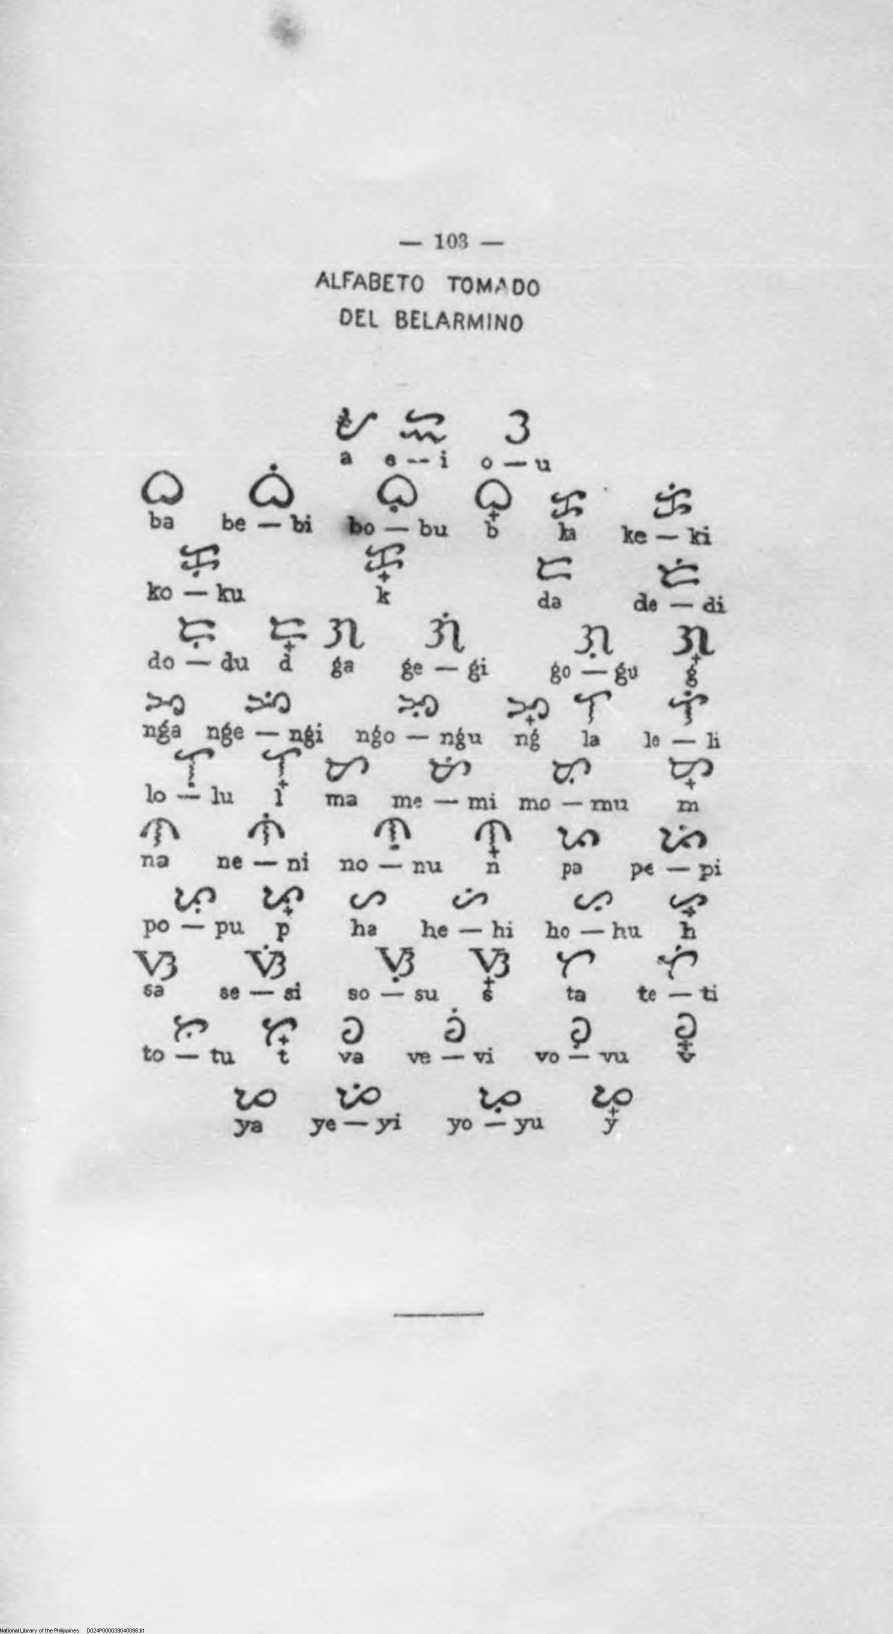 — 103 —
ALFABETO TOMADO
DEL BELARMINO
ᜀ ᜁ ᜂ
a e — i o — u
ᜊ ᜊᜒ ᜊᜓ ᜊ᜔ ᜃ ᜃᜒ
ba be — bi bo — bu b ka ke — ki
ᜃᜓ ᜃ᜔ ᜇ ᜇᜒ
ko — ku k da de — di
ᜇᜓ ᜇ᜔ ᜄ ᜄᜒ ᜄᜓ ᜄ᜔
do — du d ǵa ǵe — ǵi ǵo — ǵu ǵ
ᜅ ᜅᜒ ᜅᜓ ᜅ᜔ ᜎ ᜎᜒ
nǵa nǵe — nǵi nǵo — nǵu nǵ la le — li
ᜎᜓ ᜎ᜔ ᜋ ᜋᜒ ᜋᜓ ᜋ᜔
lo — lu l ma me — mi mo — mu m
ᜈ ᜈᜒ ᜈᜓ ᜈ᜔ ᜉ ᜉᜒ
na ne — ni no — nu n pa pe — pi
ᜉᜓ ᜉ᜔ ᜑ ᜑᜒ ᜑᜓ ᜑ᜔
po — pu p ha he — hi ho — hu h
ᜐ ᜐᜒ ᜐᜓ ᜐ᜔ ᜆ ᜆᜒ
sa se — si so — su s ta te — ti
ᜆᜓ ᜆ᜔ ᜏ ᜏᜒ ᜏᜓ ᜏ᜔
to — tu t va ve — vi vo — vu v
ᜌ ᜌᜒ ᜌᜓ ᜌ᜔
ya ye — yi yo — yu y
National Library of the Philippines